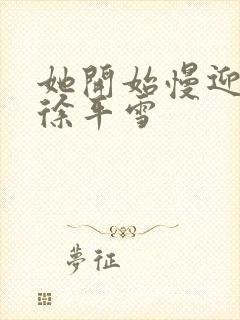 她開始慢迎
徐平雪
夢征